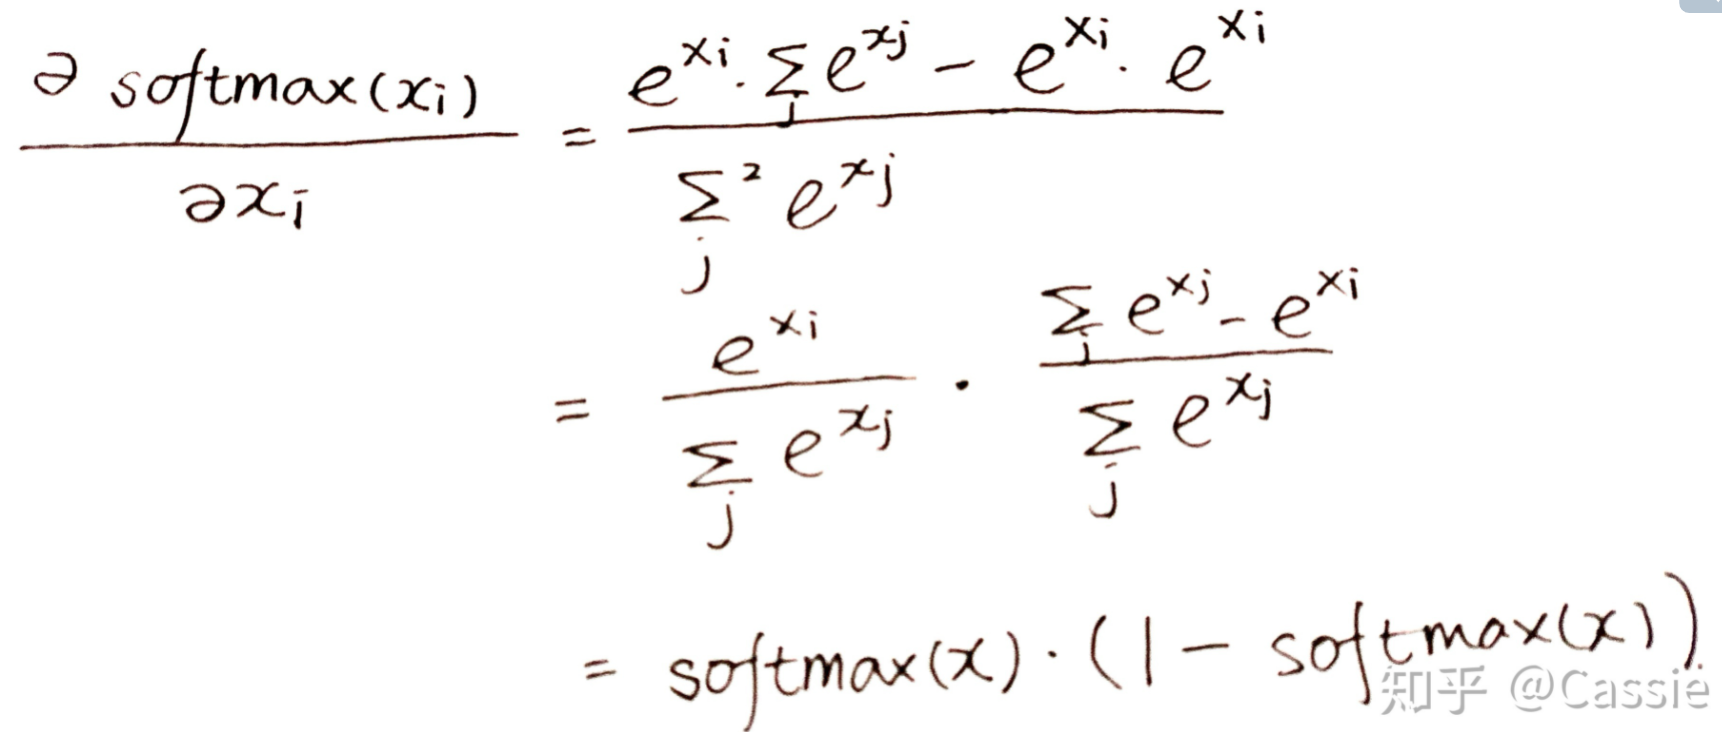 ∂ softmax(xi) / ∂xi = (e^xi · Σ_j e^xj − e^xi · e^xi) / (Σ_j² e^xj)
= e^xi / (Σ_j e^xj) · (Σ_j e^xj − e^xi) / (Σ_j e^xj)
= softmax(x) · (1 − softmax(x))
知乎 @Cassie